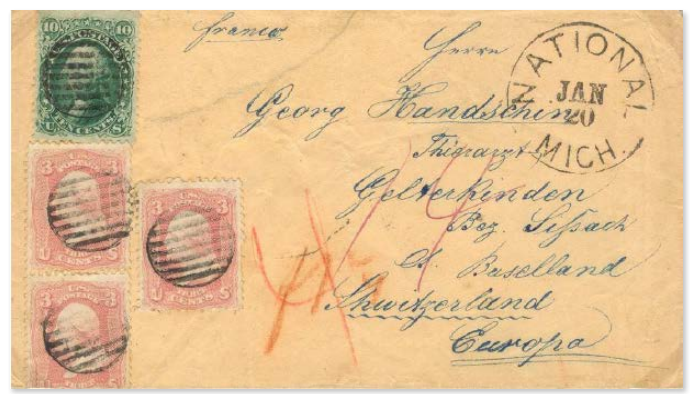 franco
Herrn
Georg Handschin
Thierarzt
Gelterkinden
Bez. Sissach
Ct. Baselland
Schwitzerland
Europa
NATIONAL
JAN
20
MICH.
10 10
U.S. POSTAGE
TEN CENTS
U. S.
3 3
U.S.
POSTAGE
THREE
CENTS
U S
3 3
U.S.
POSTAGE
THREE
CENTS
U S
3 3
U.S.
POSTAGE
THREE
CENTS
U S